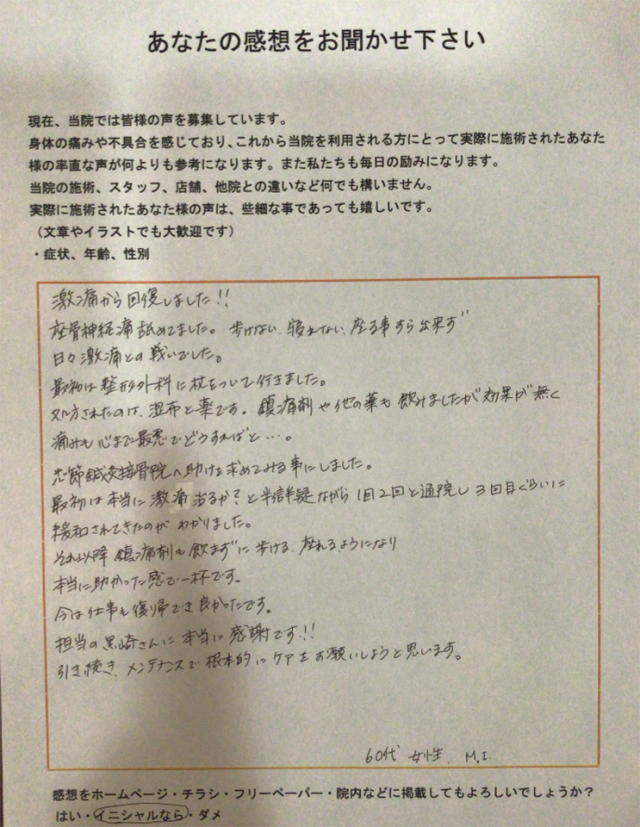 あなたの感想をお聞かせ下さい
現在、当院では皆様の声を募集しています。
身体の痛みや不具合を感じており、これから当院を利用される方にとって実際に施術されたあなた
様の率直な声が何よりも参考になります。また私たちも毎日の励みになります。
当院の施術、スタッフ、店舗、他院との違いなど何でも構いません。
実際に施術されたあなた様の声は、些細な事であっても嬉しいです。
（文章やイラストでも大歓迎です）
・症状、年齢、性別
激痛から回復しました!!
座骨神経痛舐めてました。歩けない、寝れない、座る事すら出来ず
日々激痛との戦いでした。
最初は整形外科に杖をついて行きました。
処方されたのは、湿布と薬です。鎮痛剤や他の薬も飲みましたが効果が無く
痛みも心まで最悪でどうすればと…。
鍼灸接骨院へ助けを求めてみる事にしました。
最初は本当に激痛治るか?と半信半疑ながら1回2回と通院し3回目ぐらいに
緩和されてきたのがわかりました。
それ以降鎮痛剤も飲まずに歩ける、座れるようになり
本当に助かった感で一杯です。
今は仕事も復帰でき良かったです。
担当の黒崎さんに本当に感謝です!!
引き続き、メンテナンスで根本的にケアをお願いしようと思います。
60代 女性 M.I
感想をホームページ・チラシ・フリーペーパー・院内などに掲載してもよろしいでしょうか？
はい・イニシャルなら・ダメ